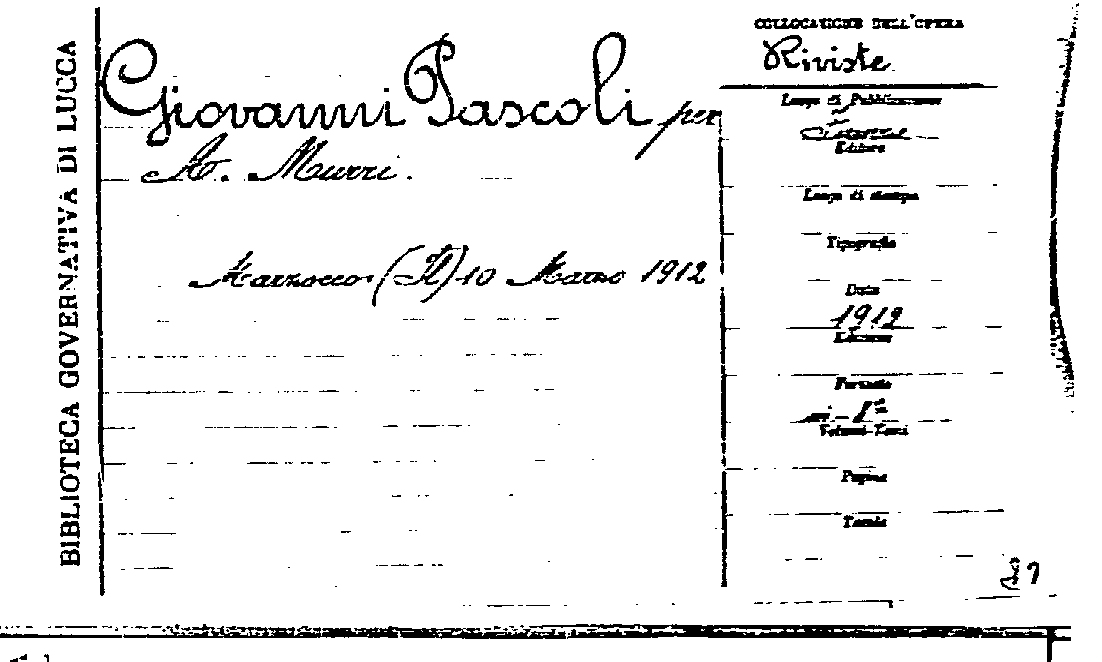 BIBLIOTECA GOVERNATIVA DI LUCCA
Giovanni Pascoli per
A. Murri.
Marzocco (Il) 10 Marzo 1912
COLLOCAZIONE DELL'OPERA
Riviste
Luogo di Pubblicazione
Firenze
Editore
Luogo di stampa
Tipografia
Data
1912
Edizione
Formato
in-f°
Volumi-Tomi
Pagine
Tavole